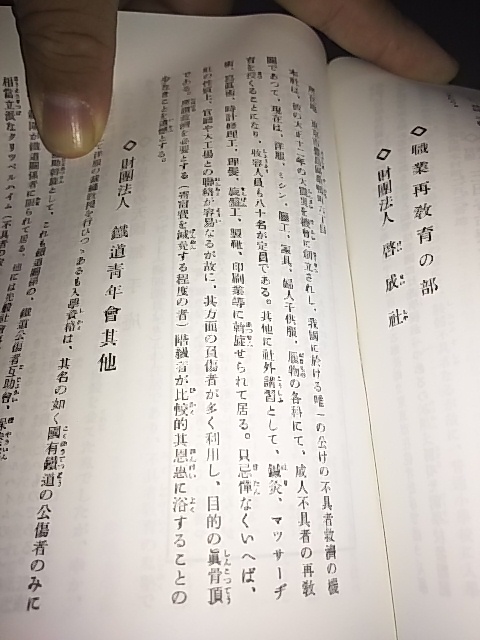 ◇ 職業再教育の部
◇ 財團法人 啓成社
本社は、彼の大正十二年の大震災を機會に創立されし、我國に於ける唯一の公けの不具者救濟の機
關であつて、現在は、洋服、ミシン、鑵工、家具、婦人子供服、履物の各科にて、成人不具者の再敎
育を授くることになり、收容人員も八十名が定員である。其他に社外講習として、鍼灸、マツサーヂ
術、寫眞術、時計修理工、理髮、旋盤工、製靴、印刷業等に斡旋せられて居る。只忌憚なくいへば、
社の性質上、官廳や大工場との聯絡が容易なるが故に、其方面の負傷者が多く利用し、目的の眞骨頂
である、應謂救濟を必要とする（寄宿費を減免する程度の者）階級者が比較的其恩惠に浴することの
少なきことを遺憾とする。
◇ 財團法人 鐵道靑年會其他
洋傘の裁縫敎授を行ひつゝあるも入學資格は、其名の如く國有鐵道の公傷者のみに
として、これも鐵道關係の、鐵道公傷者互助會、
鐵道關係者に限られて居る。他には
相當立派なクリツペルハイム（不具者の